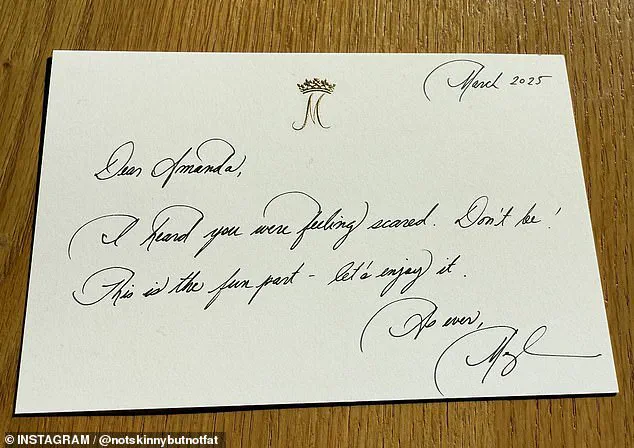 M
March 2025
Dear Amanda,
I heard you were feeling scared. Don't be!
This is the fun part - let's enjoy it.
As ever,
© INSTAGRAM / @notskinnybutnotfat